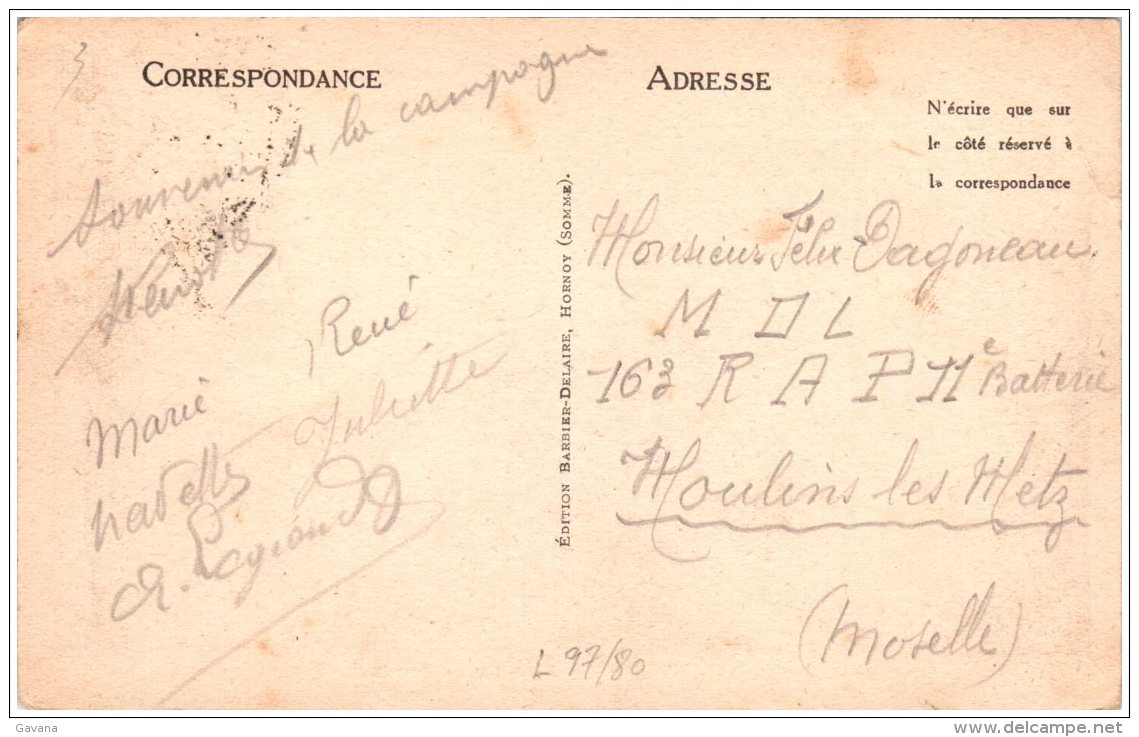 CORRESPONDANCE
Souvenir de la campagne
René
Marie
Juliette
ADRESSE
N'écrire que sur
le côté réservé à
la correspondance
Monsieur Félix Dagoneau
M D L
163 R A P 11e Batterie
Moulins les Metz
(Moselle)
ÉDITION BARBIER-DELAIRE, HORNOY (SOMME).
L 97/80
Gavana
www.delcampe.net